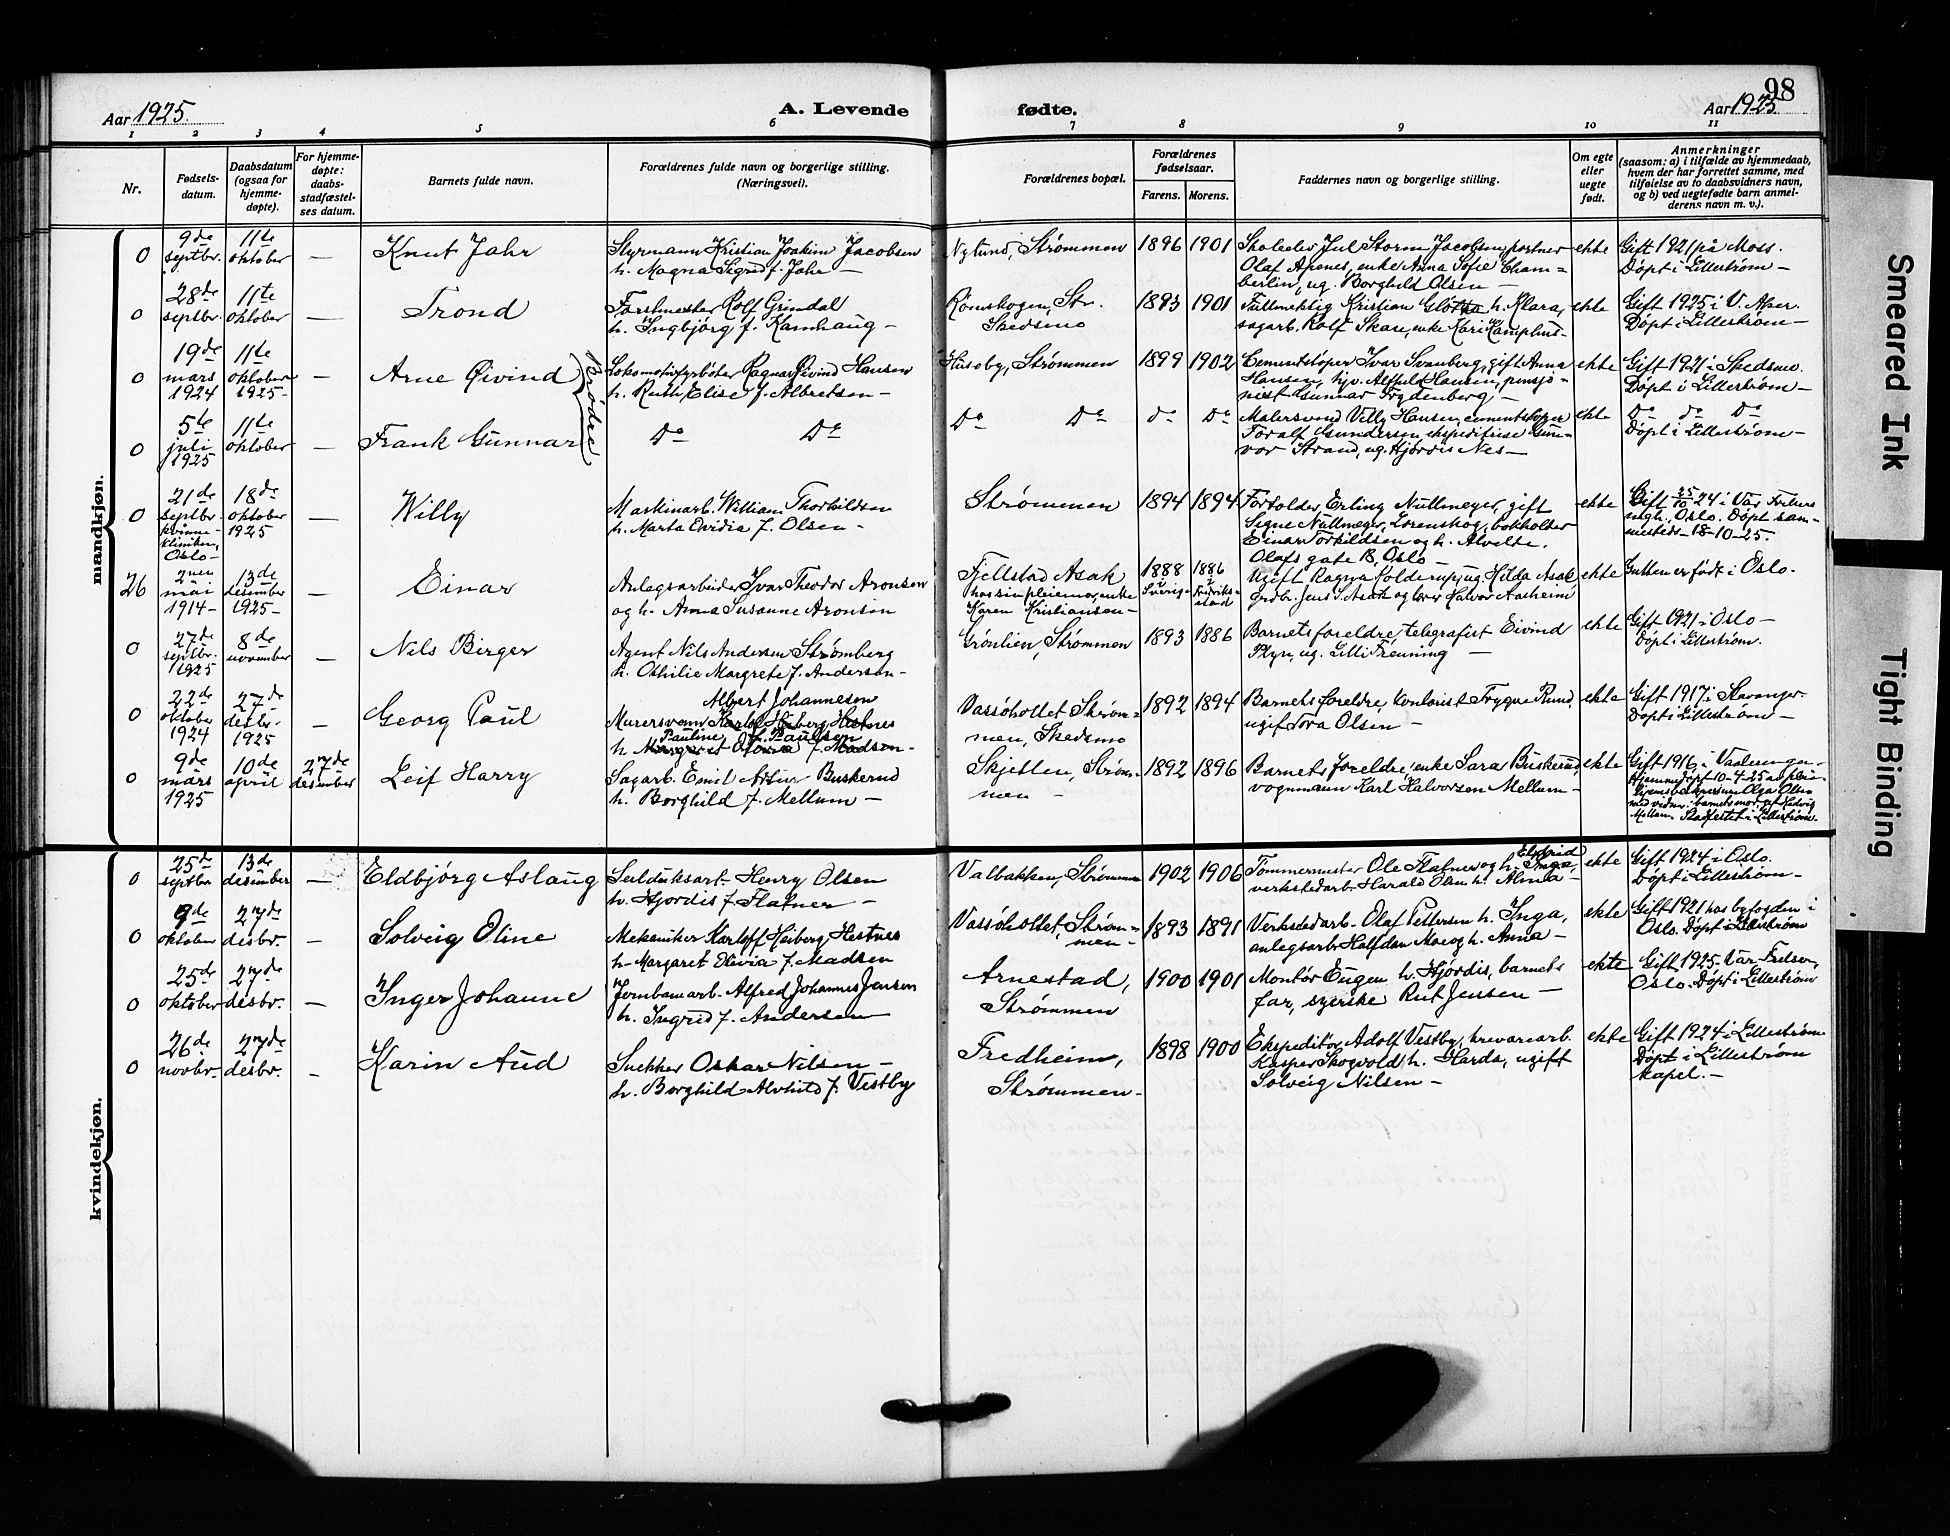 98
Aar 1925.
A. Levende
fødte.
Aar 1925.
1 2 3 4 5 6 7 8 9 10 11
Nr.
Fødsels-
datum.
Daabsdatum
(ogsaa for
hjemme-
døpte).
For hjemme-
døpte:
daabs-
stadfæstel-
ses datum.
Barnets fulde navn.
Forældrenes fulde navn og borgerlige stilling.
(Næringsvei).
Forældrenes bopæl.
Forældrenes
fødselsaar.
Farens. Morens.
Faddernes navn og borgerlige stilling.
Om egte
eller
uegte
født.
Anmerkninger
(saasom: a) i tilfælde av hjemmedaab,
hvem der har forrettet samme, med
tilføielse av to daabsvidners navn,
og b) ved uegtefødte barn anmel-
derens navn m. v.).
mandkjøn.
0
9de
septbr.
11te
oktober
—
Knut Jahr
Styrmann Kristian Joakim Jacobsen
h. Magna Sigrid f. Jahr —
Nylund, Strømmen
1896
1901
Skoleelev Jul Storm Jacobsen, portner
Olaf Apenes, enke Anna Sofie Cham=
berlin, ug. Borghild Olsen —
ekte
Gift 1921 på Moss.
Døpt i Lillestrøm —
0
28de
septbr.
11te
oktober
—
Trond
Forstmester Rolf Grindal
h. Ingbjørg f. Kamhaug —
Rømskogen, Str.
Skedsmo
1893
1901
Fullmektig Kristian h. Klara,
sagarb. Rolf Skare, enke Kari Kamphus
ekte
Gift 1925 i V. Aker.
Døpt i Lillestrøm —
0
19de
mars
1924
11te
oktober
1925 —
—
Arne Øivind
Brødre
Lokomotivfyrbøter Ragnar Øivind Hansen
h. Ruth Elise f. Albretsen —
Huseby, Strømmen
1899
1902
Cementstøper Ivar Svanberg, gift Anna
Hansen, hjv. Alfhild Hansen, pensjo=
nist Gunnar Frydenberg —
ekte
Gift 1921 i Skedsmo.
Døpt i Lillestrøm —
0
5te
juli
1925
11te
oktober
—
Frank Gunnar
Do Do
Do Do
do
Do
Malersvend Villy Hansen, cementstøper
Toralf Gundersen, ekspeditrise Gun=
vor Strand, ug. Hjørdis Nes —
ekte
Do do Do
Døpt i Lillestrøm —
0
21de
septbr.
kvinne-
kliniken,
Oslo —
18de
oktober
1925
—
Willy
Maskinarb. William Thorkildsen
h. Marta Ovidia f. Olsen —
Strømmen
1894
1894
Forvolder Erling Nullmeyer, gift
Signe Nullmeyer, Lørenskog, bokholder
Einar Torkildsen og h. Alvilde,
Olafs gate 18, Oslo —
ekte
Gift 25/10 24 i Vår Frelsers
mgh., Oslo. Døpt sam=
mesteds 18-10-25.
26
2nen
mai
1914 —
13de
desember
1925 —
—
Einar
Anlegsarbeider Ivar Theodor Aronsen
og h. Anna Susanne Aronsen
Fjellstad Asak
hos sin pleiemor, enke
Karen Kristiansen —
1888
i
Sverige
1886
i
Fredrik=
stad
Ugift Ragna Holderup, ug. Hilda Asak
grdbr. Jens S. Asak og lærer Halvor Aasheim
ekte
Gutten er født i Oslo.
0
27de
septbr.
1925
8de
november
—
Nils Birger
Agent Nils Andersen Strømberg
h. Othilie Margrete f. Andersen —
Grønlien, Strømmen
1893
1886
Barnets foreldre, telegrafist Eivind
Plyn, ug. Lilli Frenning —
ekte
Gift 1921 i Oslo —
Døpt i Lillestrøm.
0
22de
oktober
1924
27de
desbr.
1925
—
Georg Paul
Albert Johannesen
Murersvenn Karloff Heiberg Hestnes
Pauline f. Paulsen
h. Margaret Olivia f. Madsen —
Vassøholtet Strøm=
men, Skedsmo
1892
1894
Barnets foreldre, kontorist Trygve Rund,
ugift Tora Olsen —
ekte
Gift 1917 i Stavanger.
Døpt i Lillestrøm —
0
9de
mars
1925
10de
april
27de
desember
Leif Harry
Sagarb. Emil Artur Buskerud
h. Borghild f. Mellum —
Skjetten, Strøm=
men —
1892
1896
Barnets foreldre, enke Sara Buskerud,
vognmann Karl Halvorsen Mellum —
ekte
Gift 1916 i Vaalerengen.
Hjemmedøpt 10-4-25 av pleie=
hjemsbestyrerinne Olga Olsen
med vidner: barnets mor, gift Hedvig
Mellum. Stadfestet i Lillestrøm.
kvindekjøn.
0
25de
septbr.
13de
desember
—
Eldbjørg Aslaug
Seilduksarb. Henry Olsen
h. Hjordis f. Flatner —
Valbakken, Strømmen
1902
1906
Tømmermester Ole Flatner og h. Inga,
verkstedarb. Harald Olsen h. Alma —
ekte
Gift 1924 i Oslo.
Døpt i Lillestrøm —
0
9de
oktober
27de
desbr.
—
Solveig Oline
Mekaniker Karloff Heiberg Hestnes
h. Margaret Olivia f. Madsen
Vassøholtet, Strøm=
men —
1893
1891
Verkstedarb. Olaf Pettersen h. Inga,
anlegsarb. Halfdan Moe og h. Anna —
ekte
Gift 1921 hos byfogden i
Oslo. Døpt i Lillestrøm
0
25de
oktober
27de
desbr.
—
Inger Johanne
Jernbanearb. Alfred Johannes Jensen
h. Ingrid f. Andersen —
Arnestad,
Strømmen
1900
1901
Montør Eugen h. Hjørdis, barnets
far, syerske Rut Jensen —
ekte
Gift 1925 Vår Frelser,
Oslo. Døpt i Lillestrøm
0
26de
novbr.
27de
desbr.
—
Karin Aud
Snekker Oskar Nilsen —
h. Borghild Alvhild f. Vestby
Fredheim,
Strømmen —
1898
1900
Ekspeditør Adolf Vestby, høvarearb.
Kasper Skogvold h. Harda, ugift
Solveig Nilsen —
ekte
Gift 1924 i Lillestrøm
Døpt i Lillestrøm
kapel. —
Smeared Ink
Tight Binding